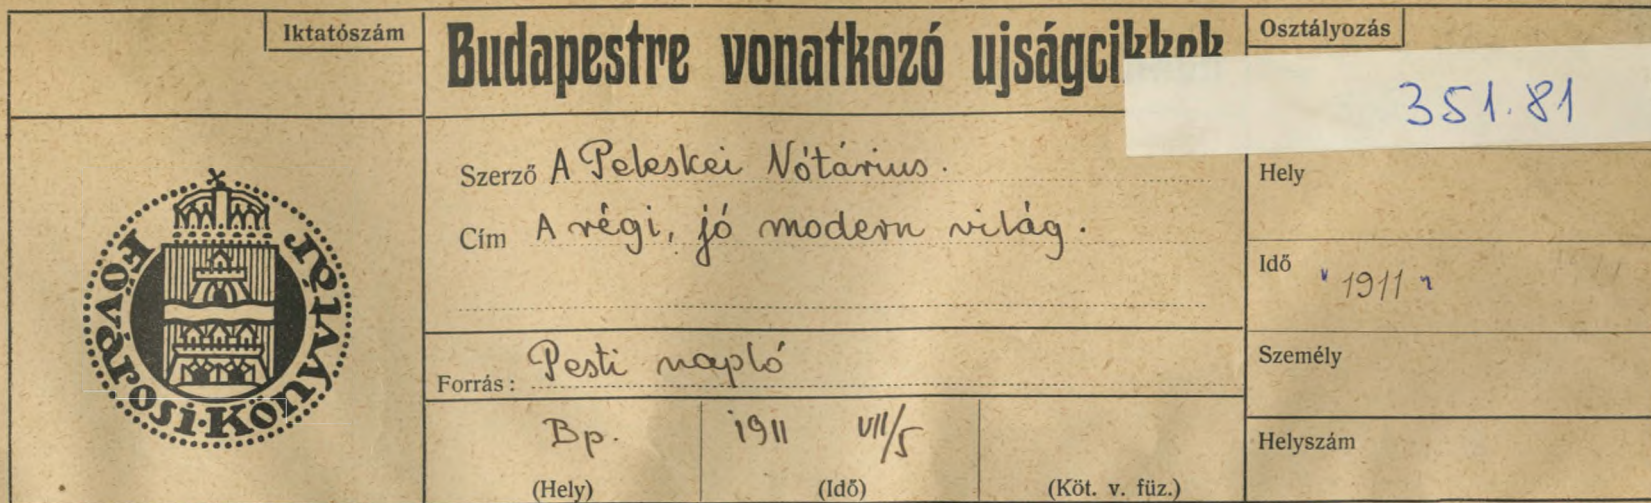 Iktatószám
Budapestre vonatkozó ujságcikkek
Osztályozás
351.81
Szerző A Peleskei Nótárius.
Cím A régi, jó modern világ.
Forrás: Pesti napló
Bp.
(Hely)
1911 VII/5
(Idő)
(Köt. v. füz.)
Hely
Idő "1911"
Személy
Helyszám
Fővárosi Könyvtár